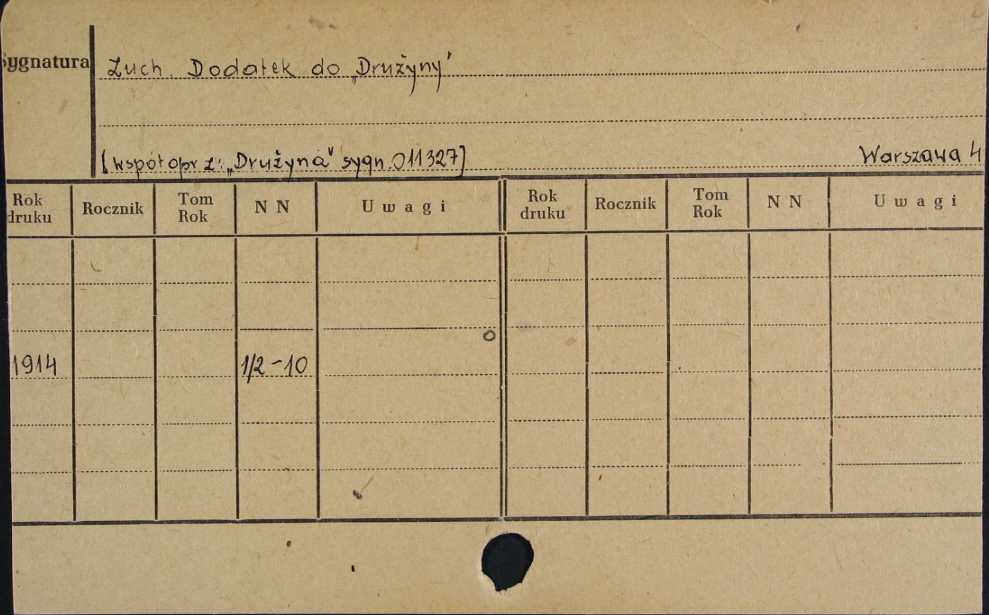 Sygnatura Zuch. Dodatek do „Drużyny"
[współopr z: „Drużyna" sygn. 011327] Warszawa 4
Rok druku Rocznik Tom Rok N N Uwagi Rok druku Rocznik Tom Rok N N Uwagi
1914 1/2-10